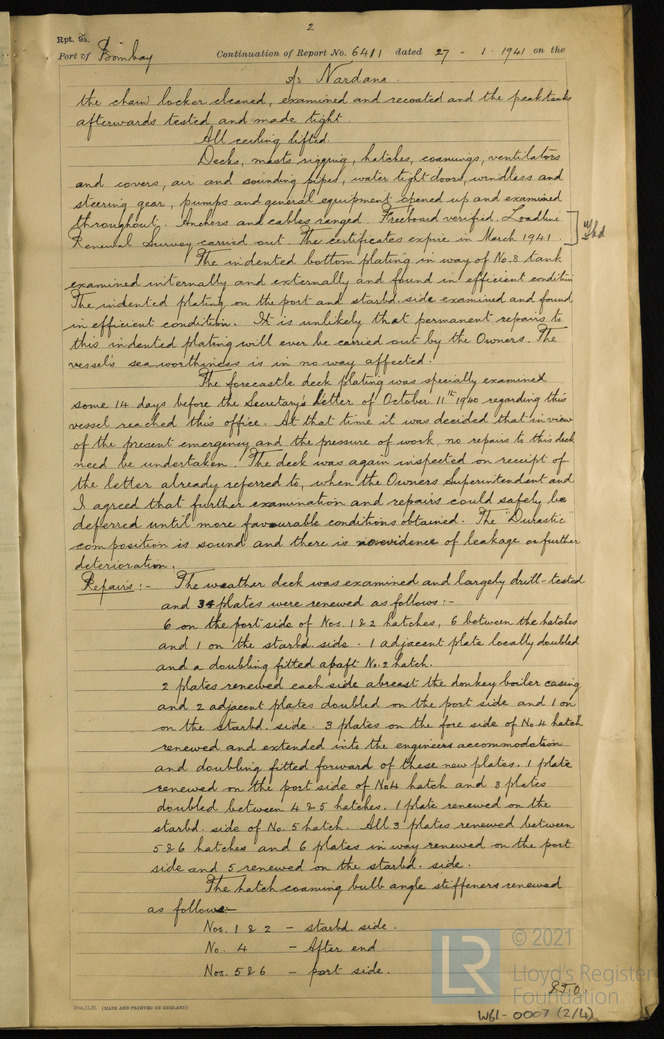 2
Rpt. 9a.
Port of Bombay Continuation of Report No. 6411 dated 27 - 1 - 1941 on the
s/s Nardana.
the chain locker cleaned, examined and recoated and the peak tanks
afterwards tested and made tight.
All ceiling lifted.
Decks, masts rigging, hatches, coamings, ventilators
and covers, air and sounding pipes, water tight doors, windlass and
steering gear, pumps and general equipment opened up and examined
throughout. Anchors and cables ranged. Freeboard verified. Loadline
Renewal Survey carried out. The certificates expire in March 1941
The indented bottom plating in way of No. 3 tank
examined internally and externally and found in efficient condition
The indented plating on the port and starbd. side examined and found
in efficient condition. It is unlikely that permanent repairs to
this indented plating will ever be carried out by the Owners. The
vessel's seaworthiness is in no way affected.
The forecastle deck plating was specially examined
some 14 days before the Secretary's letter of October 11th 1940 regarding this
vessel reached this office. At that time it was decided that in view
of the present emergency and the pressure of work, no repairs to this deck
need be undertaken. The deck was again inspected on receipt of
the letter already referred to, when the Owners Superintendent and
I agreed that further examination and repairs could safely be
deferred until more favourable conditions obtained. The "Durastic"
composition is sound and there is no evidence of leakage or further
deterioration.
Repairs :- The weather deck was examined and largely drill-tested
and 34 plates were renewed as follows :-
6 on the port side of Nos. 1 & 2 hatches, 6 between the hatches
and 1 on the starbd side. 1 adjacent plate locally doubled
and a doubling fitted apaft No. 2 hatch.
2 plates renewed each side abreast the donkey boiler casing
and 2 adjacent plates doubled on the port side and 1 on
on the starbd. side. 3 plates on the fore side of No. 4 hatch
renewed and extended into the engineers accommodation
and doubling fitted forward of these new plates. 1 plate
renewed on the port side of No4 hatch and 3 plates
doubled between 4 & 5 hatches. 1 plate renewed on the
starbd. side of No. 5 hatch. All 3 plates renewed between
5 & 6 hatches and 6 plates in way renewed on the port
side and 5 renewed on the starbd. side.
The hatch coaming bulb angle stiffeners renewed
as follows
Nos. 1 & 2 - starbd. side.
No. 4 - After end
Nos. 5 & 6 - port side.
P.T.O.
(MADE AND PRINTED IN ENGLAND)
LR
© 2021
Lloyd's Register
Foundation
W61-0007 (2/4)